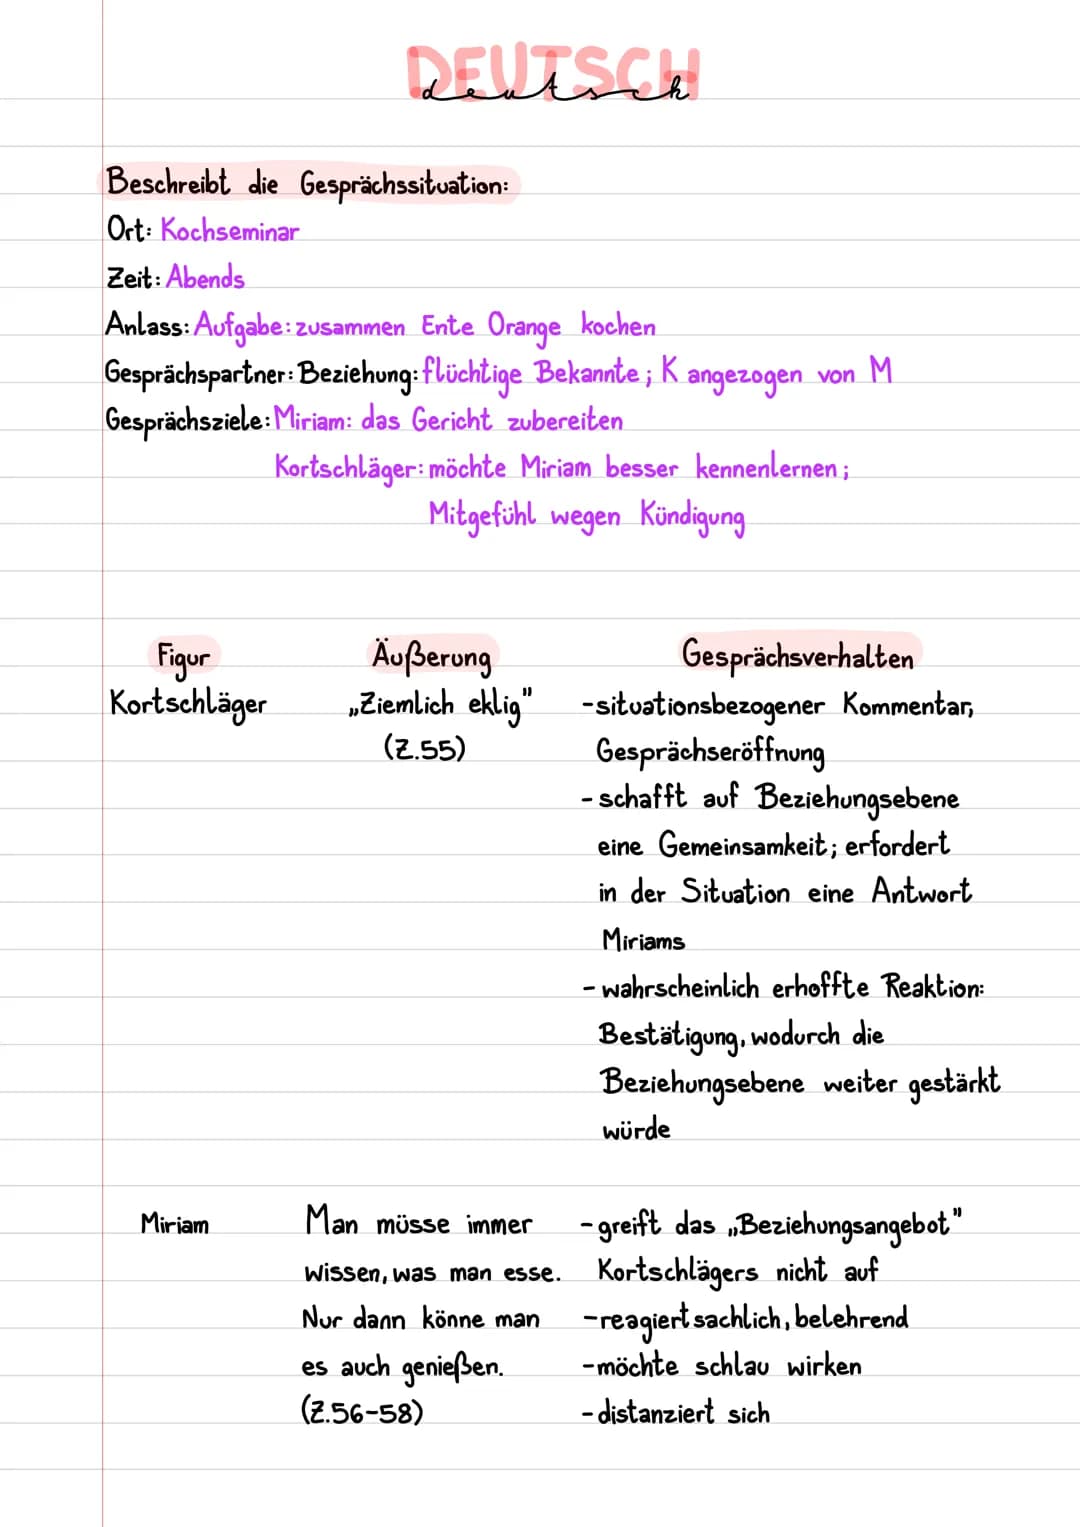 DEUTSCH
deutsch
Beschreibt die Gesprächssituation:
Ort: Kochseminar
Zeit: Abends
Anlass: Aufgabe: zusammen Ente Orange kochen
Gesprächspartner: Beziehung: flüchtige Bekannte; K angezogen von M
Gesprächsziele: Miriam: das Gericht zubereiten
Kortschläger: möchte Miriam besser kennenlernen;
Mitgefühl wegen Kündigung
Figur Äußerung Gesprächsverhalten
Kortschläger „Ziemlich eklig" -situationsbezogener Kommentar,
(Z.55) Gesprächseröffnung
- schafft auf Beziehungsebene
eine Gemeinsamkeit; erfordert
in der Situation eine Antwort
Miriams
- wahrscheinlich erhoffte Reaktion:
Bestätigung, wodurch die
Beziehungsebene weiter gestärkt
würde
Miriam Man müsse immer -greift das „Beziehungsangebot"
wissen, was man esse. Kortschlägers nicht auf
Nur dann könne man -reagiert sachlich, belehrend
es auch genießen. -möchte schlau wirken
(Z.56-58) -distanziert sich